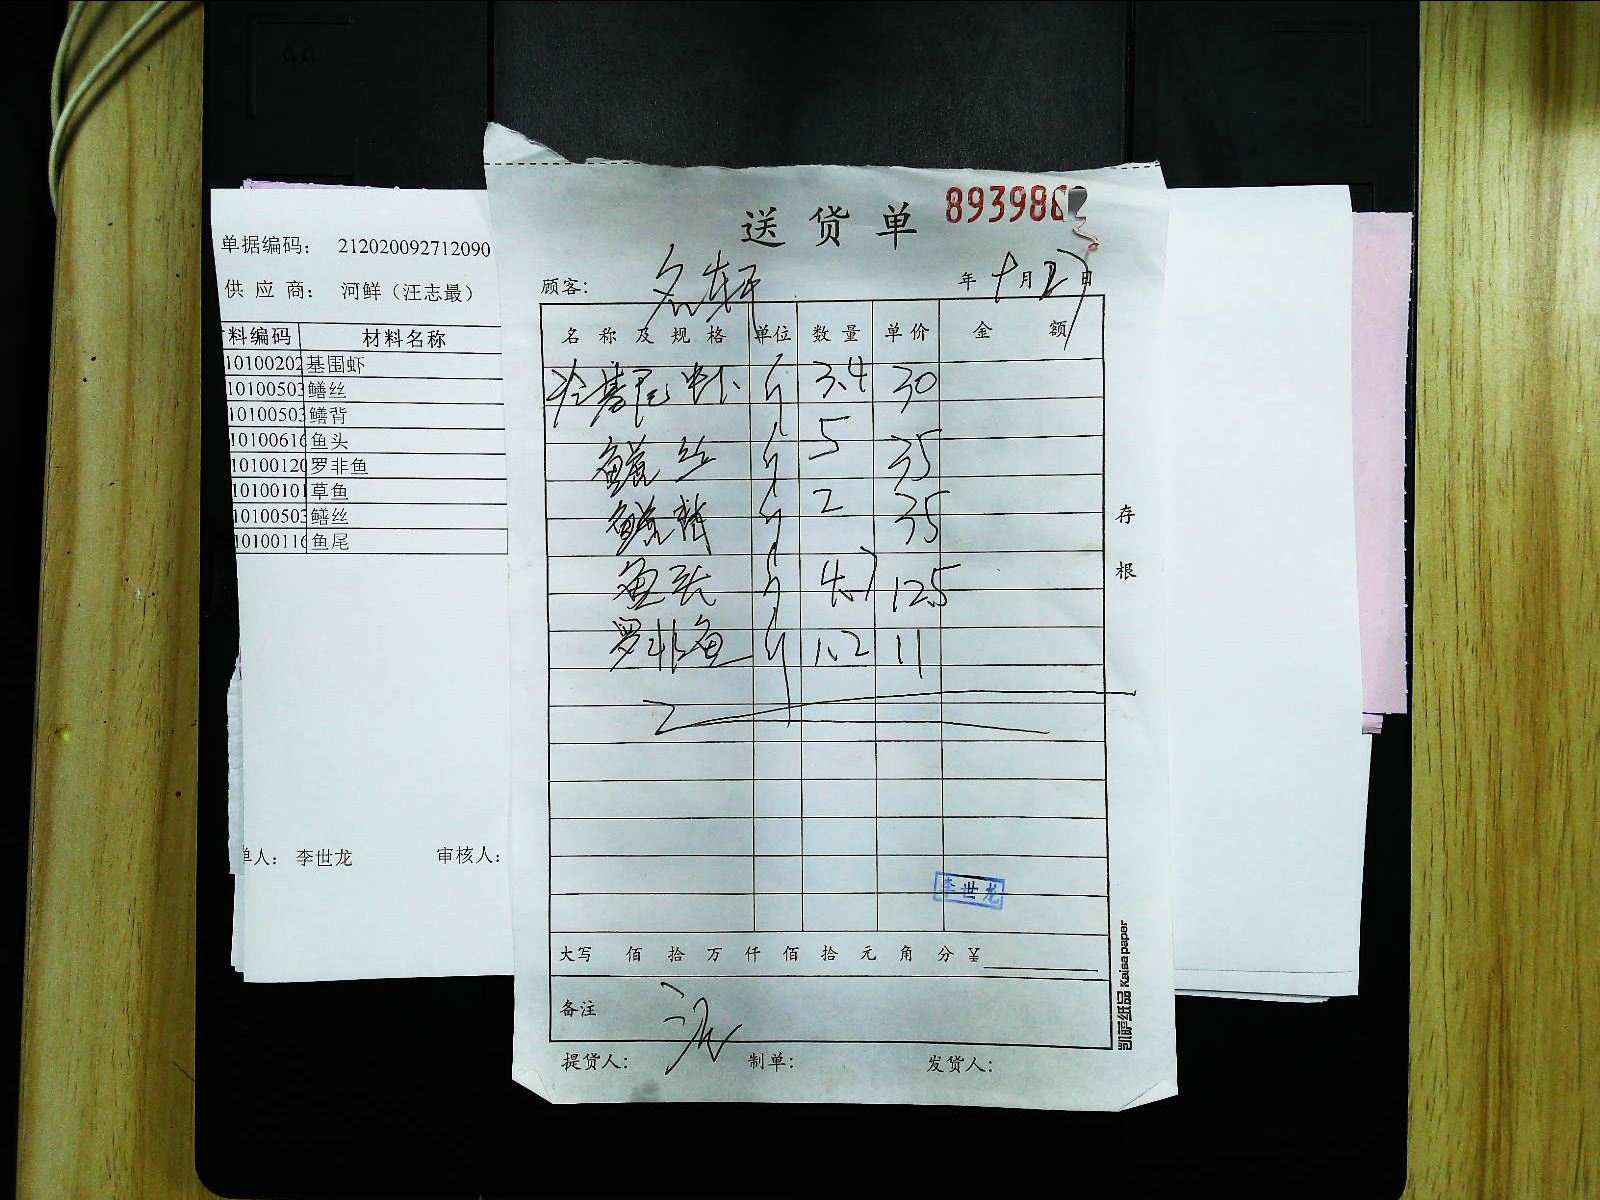 单据编码： 212020092712090
供 应 商： 河鲜（汪志最）
料编码 材料名称
10100202 基围虾
10100503 鳝丝
10100503 鳝背
10100616 鱼头
10100120 罗非鱼
10100101 草鱼
10100503 鳝丝
10100116 鱼尾
单人： 李世龙 审核人：
送货单 893986
顾客： 名轩 年 9月27日
名称及规格 单位 数量 单价 金额
冷基尾虾 斤 3.4 30
鳝丝 斤 5 35
鳝背 斤 2 35
鱼头 斤 4.7 12.5
罗非鱼 斤 1.2 11
存根
李世龙
大写 佰 拾 万 仟 佰 拾 元 角 分 ¥
备注
提货人： 制单： 发货人：
凯萨纸品 Kaisa paper